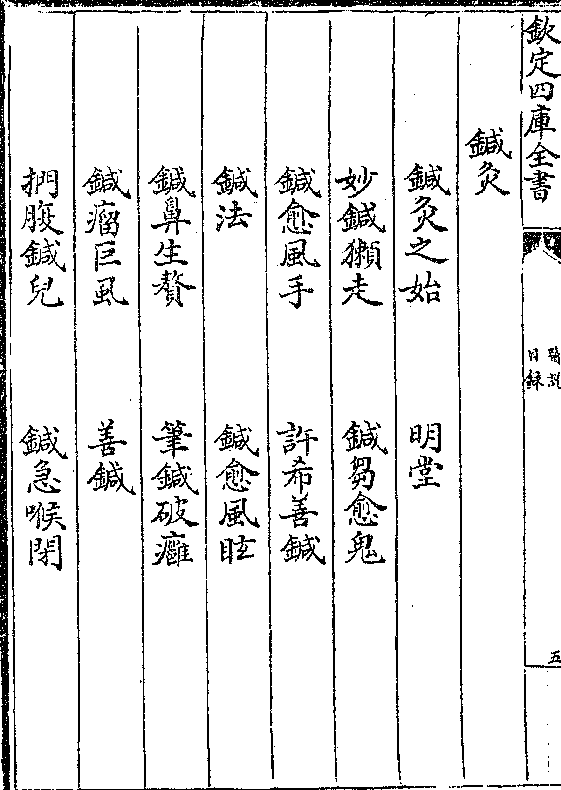 欽定四庫全書
醫說
目錄
五
鍼灸
鍼灸之始　明堂
妙鍼獺走　鍼芻愈鬼
鍼愈風手　許希善鍼
鍼法　鍼愈風眩
鍼鼻生贅　筆鍼破癰
鍼瘤巨虱　善鍼
捫腹鍼兒　鍼急喉閉